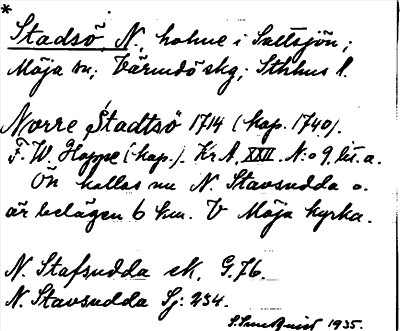 *
Stadsö, N., holme i Saltsjön;
Möja sn; Värmdö skg; Sthlms l.
Norre Stadtsö 1714 (kop. 1740).
F. W. Hoppe (kop.). Kr A, XXII. N:o 9 lit. a.
Ön kallas nu N. Stavsudda o.
är belägen 6 km. V Möja kyrka.
N. Stafsudda ek. G. 76.
N. Stavsudda Sj: 234.
1935.